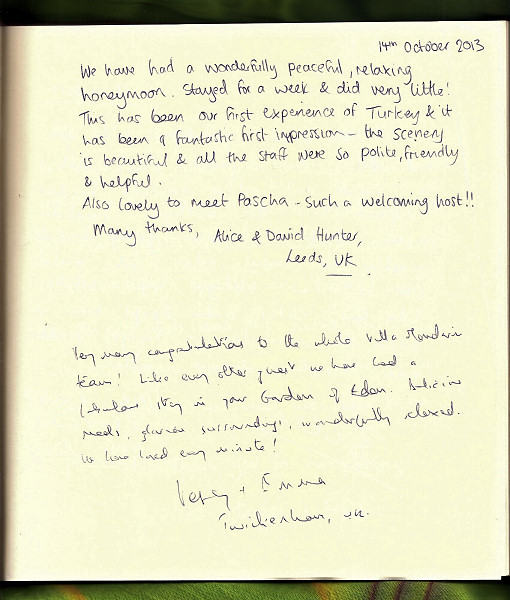 14th October 2013
We have had a wonderfully peaceful, relaxing
honeymoon. Stayed for a week & did very little!
This has been our first experience of Turkey & it
has been a fantastic first impression – the scenery
is beautiful & all the staff were so polite, friendly
& helpful.
Also lovely to meet Pascha – such a welcoming host!!
Many thanks, Alice & David Hunter,
Leeds, UK.
Very many congratulations to the whole Villa
team! Like every other guest we have had a
fabulous stay in your Garden of Eden. Delicious
meals, glorious surroundings, wonderfully relaxed.
We have loved every minute!
+ Emma
Twickenham, UK.